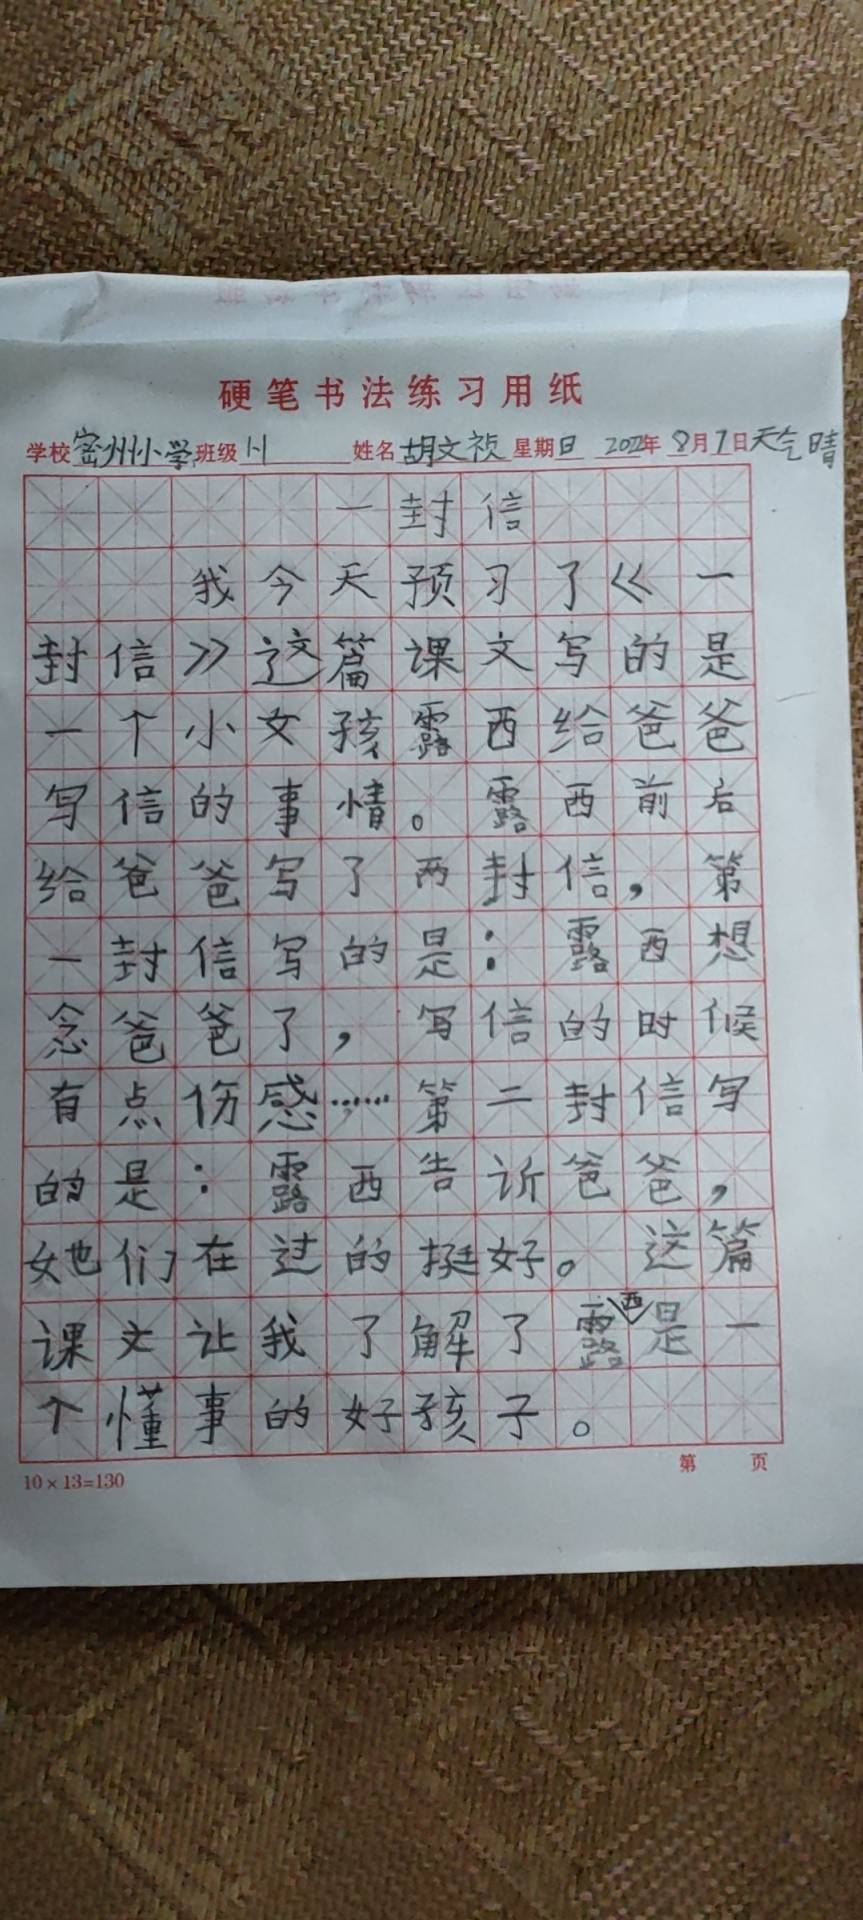 硬笔书法练习用纸
学校密州小学班级1-1 姓名胡文祯星期日 2022年8月7日天气晴
一封信
我今天预习了《一
封信》这篇课文写的是
一个小女孩露西给爸爸
写信的事情。露西前后
给爸爸写了两封信，第
一封信写的是：露西想
念爸爸了，写信的时候
有点伤感……第二封信写
的是：露西告诉爸爸，
她们在过的挺好。这篇
课文让我了解了露西是一
个懂事的好孩子。
10×13=130 第 页